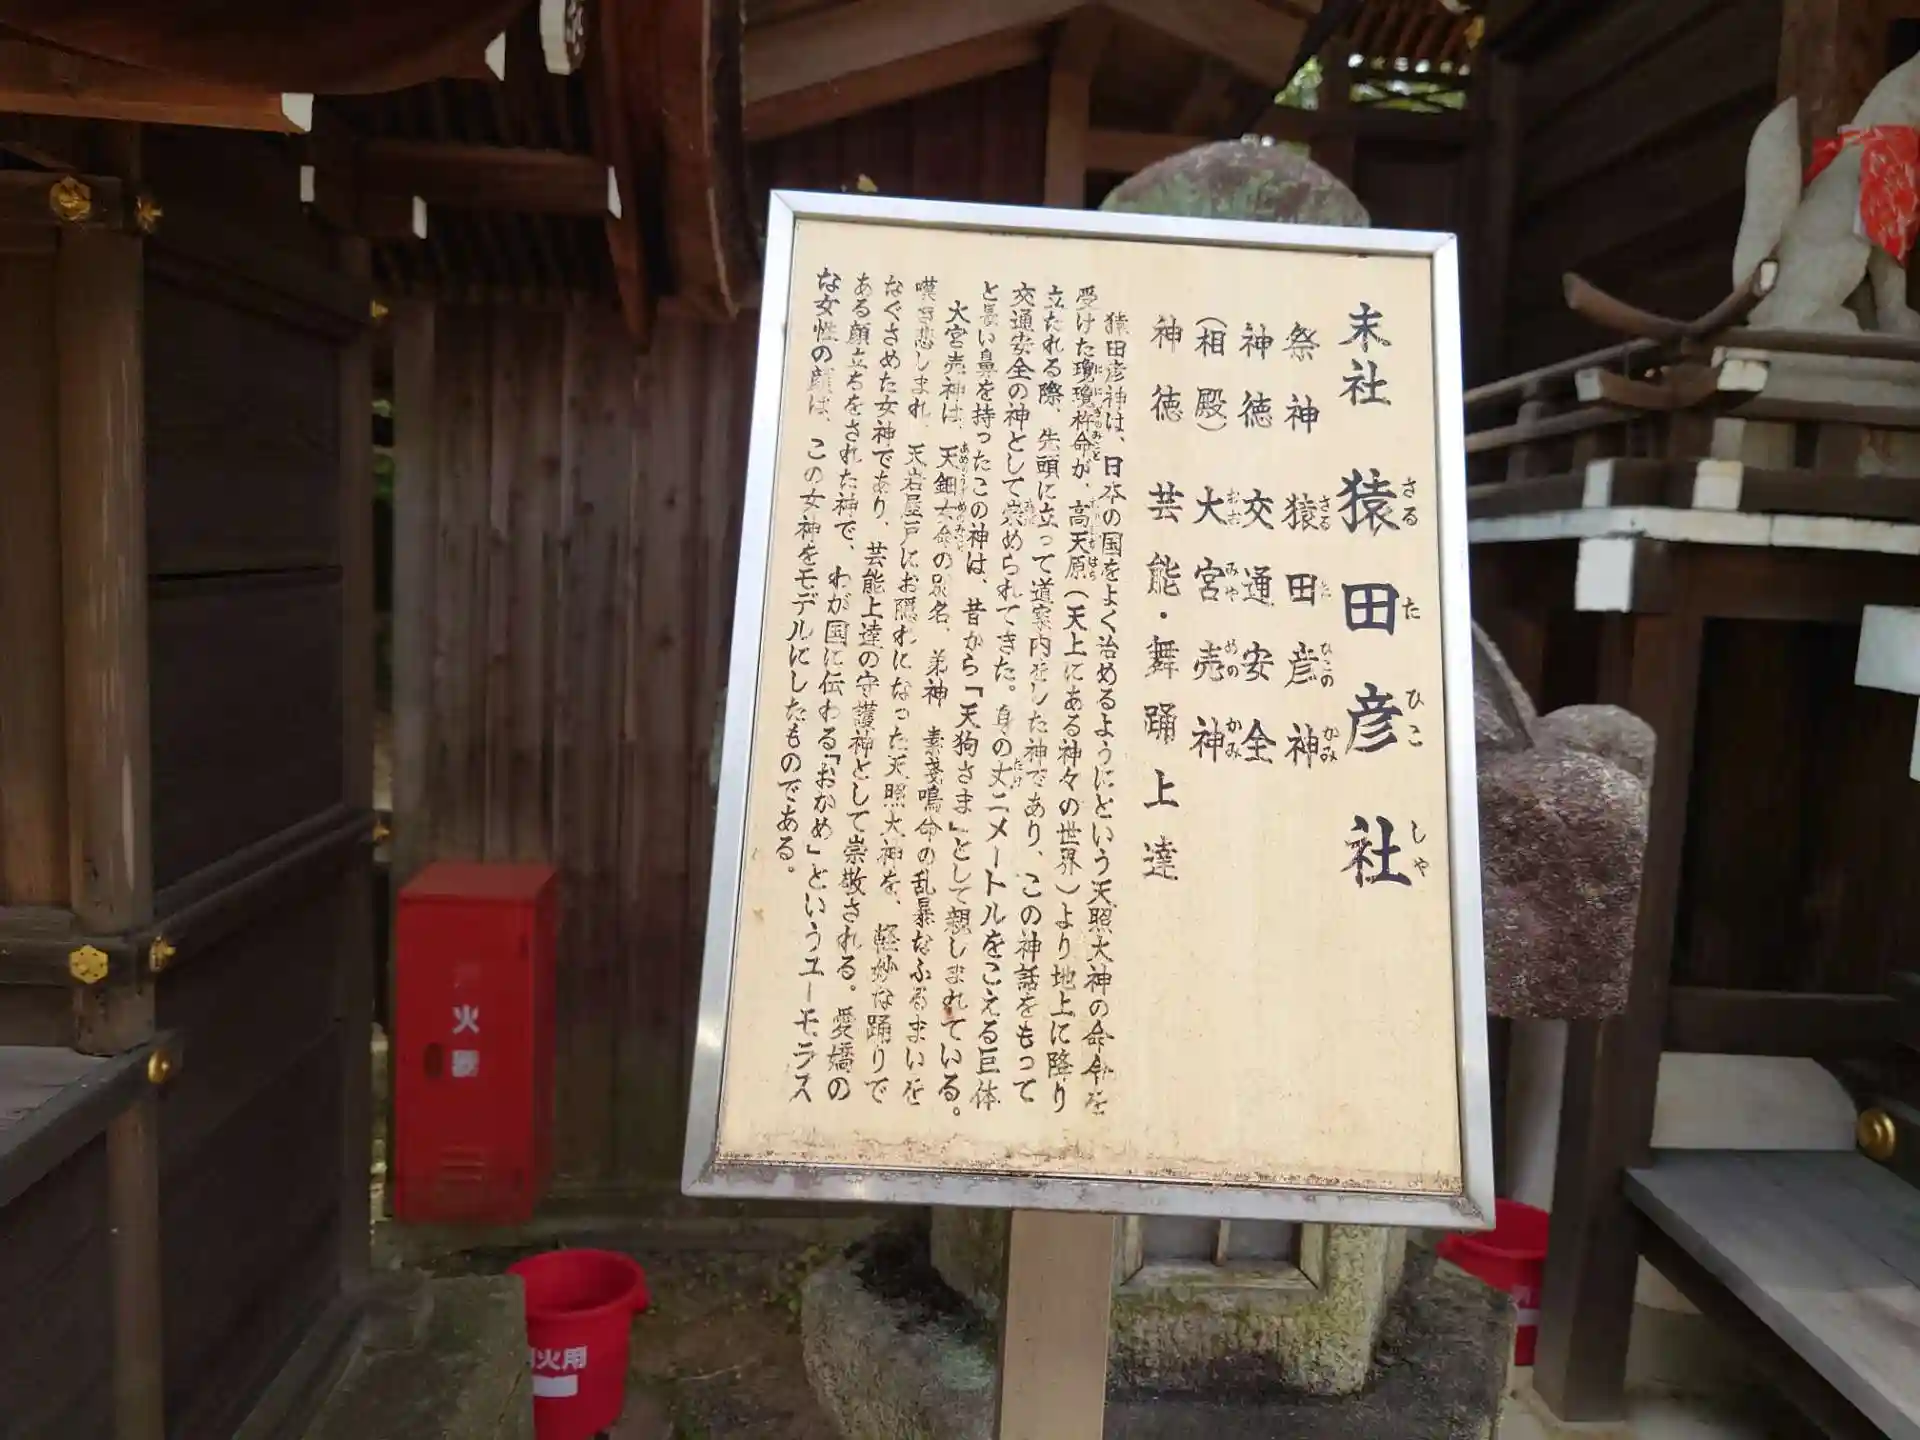 末社 猿田彦社
さる た ひこ しゃ
祭神 猿田彦神
さる た ひこの かみ
神徳 交通安全
(相殿) 大宮売神
おお みや めの かみ
神徳 芸能・舞踊上達
猿田彦神は、日本の国をよく治めるようにという天照大神の命令を
受けた瓊瓊杵命が、高天原(天上にある神々の世界)より地上に降り
立たれる際、先頭に立って道案内をした神であり、この神話をもって
交通安全の神として崇められてきた。身の丈二メートルをこえる巨体
と長い鼻を持ったこの神は、昔から「天狗さま」として親しまれている。
大宮売神は、天鈿女命の別名、弟神 素戔鳴命の乱暴なふるまいを
嘆き悲しまれ、天岩屋戸にお隠れになった天照大神を、軽妙な踊りで
なぐさめた女神であり、芸能上達の守護神として崇敬される。愛嬌の
ある顔立ちをされた神で、わが国に伝わる「おかめ」というユーモラス
な女性の顔は、この女神をモデルにしたものである。
火
火用